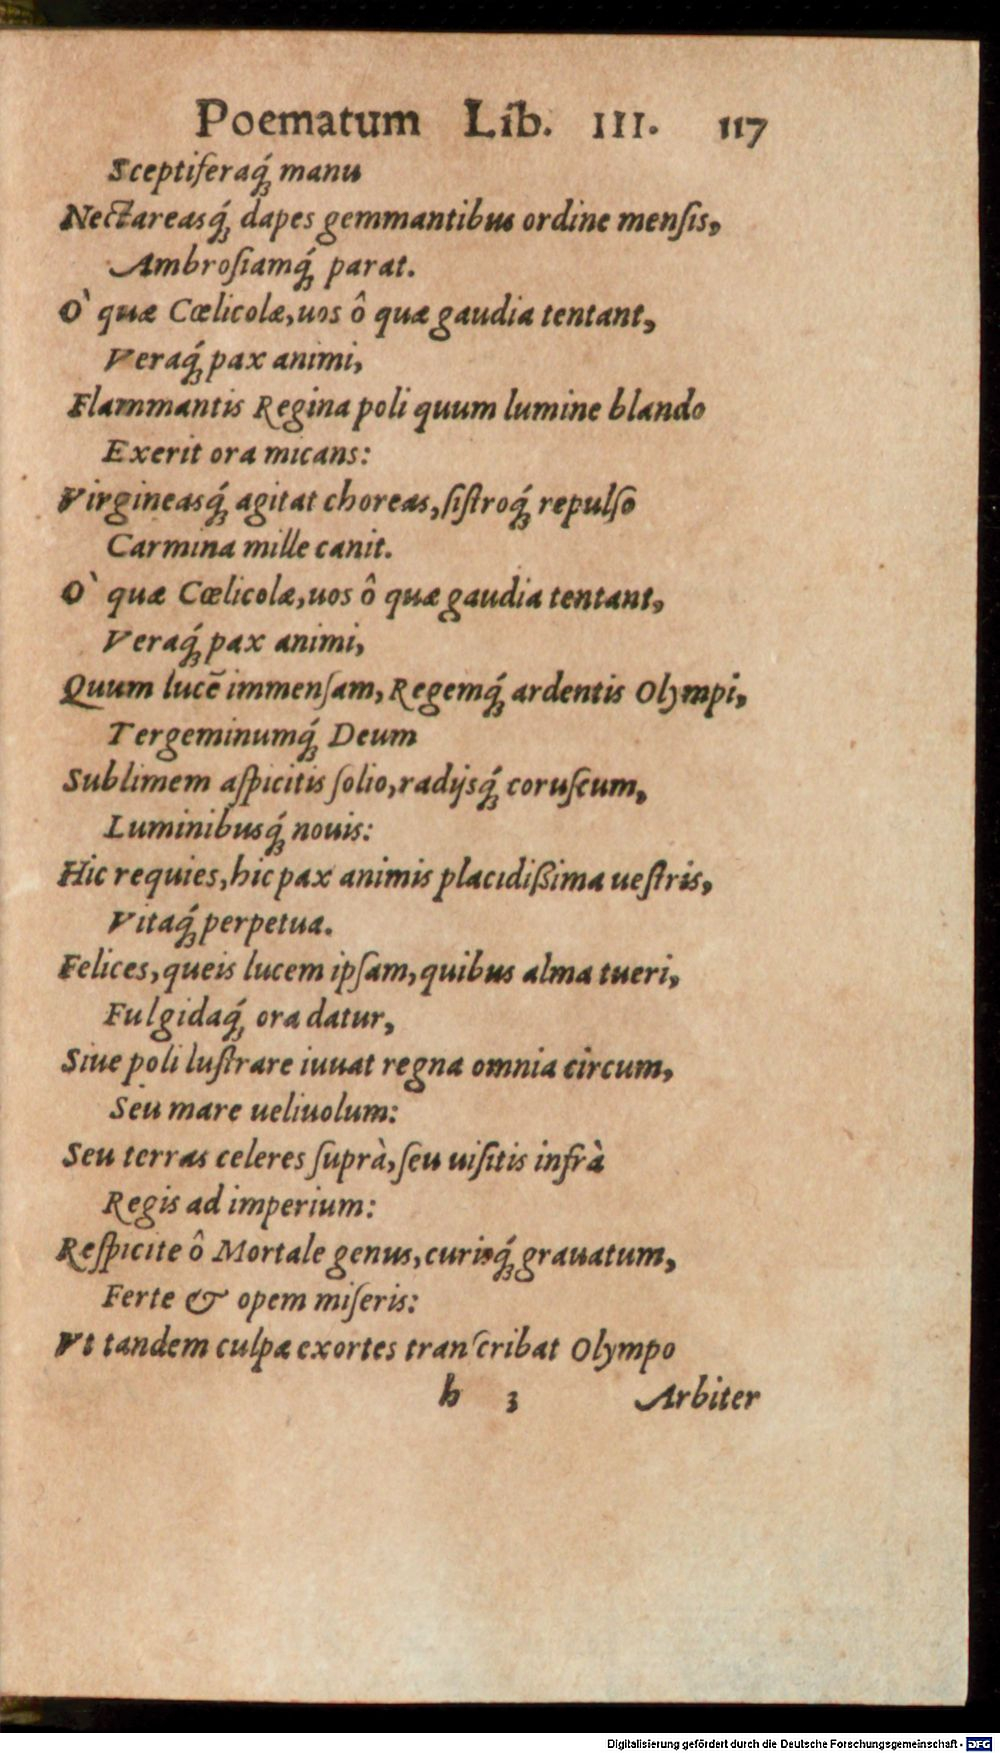 Poematum Lib. III. 117
Sceptiferaq́ꝫ manu
Nectareasq́ꝫ dapes gemmantibus ordine menſis,
Ambroſiamq́ꝫ parat.
O` quæ Cœlicolæ, uos ô quæ gaudia tentant,
Veraq́ꝫ pax animi,
Flammantis Regina poli quum lumine blando
Exerit ora micans:
Virgineasq́ꝫ agitat choreas, ſiſtroq́ꝫ repulſo
Carmina mille canit.
O` quæ Cœlicolæ, uos ô quæ gaudia tentant,
Veraq́ꝫ pax animi,
Quum lucē immenſam, Regemq́ꝫ ardentis Olympi,
Tergeminumq́ꝫ Deum
Sublimem aſpicitis ſolio, radijsq́ꝫ coruſcum,
Luminibusq́ꝫ nouis:
Hic requies, hic pax animis placidißima ueſtris,
Vitaq́ꝫ perpetua.
Felices, queis lucem ipſam, quibus alma tueri,
Fulgidaq́ꝫ ora datur,
Siue poli luſtrare iuuat regna omnia circum,
Seu mare ueliuolum:
Seu terras celeres ſuprà, ſeu uiſitis infrà
Regis ad imperium:
Reſpicite ô Mortale genus, curisq́ꝫ grauatum,
Ferte & opem miſeris:
Vt tandem culpæ exortes tranſcribat Olympo
h 3 Arbiter
Digitalisierung gefördert durch die Deutsche Forschungsgemeinschaft - DFG